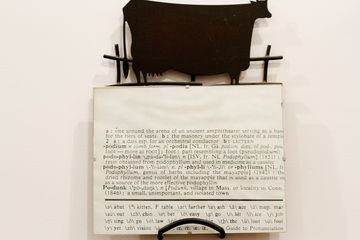 a : one around the arena of an ancient amphitheater serving as a base
for the tiers of seats b : the masonry under the stylobate of a temple
2 a : a dais esp. for an orchestral conductor b : LECTERN
-podium n comb form, pl -podia [NL, fr. Gk podion, dim. of pod-, pous
foot — more at FOOT] : foot : part resembling a foot
podo·phyl·lin n [ISV, fr. NL Podophyllum] (1851) :
resin obtained from podophyllum and used in medicine as a caustic
podo·phyl·lum n, pl or podophyllums [NL, fr.
Podophyllum, genus of herbs including the mayapple]
dried rhizome and rootlet of the mayapple that is used as a caustic or
as a source of the more effective podophyllin
Po·dunk n [Podunk, village in Mass. or locality in Conn.]
(1846) : a small, unimportant, and isolated town
abut kitten, F table further ash ace mop, mar
out chin bet easy go hit ice job
sing go law boy thin the loot foot
yet vision Guide to Pronunciation